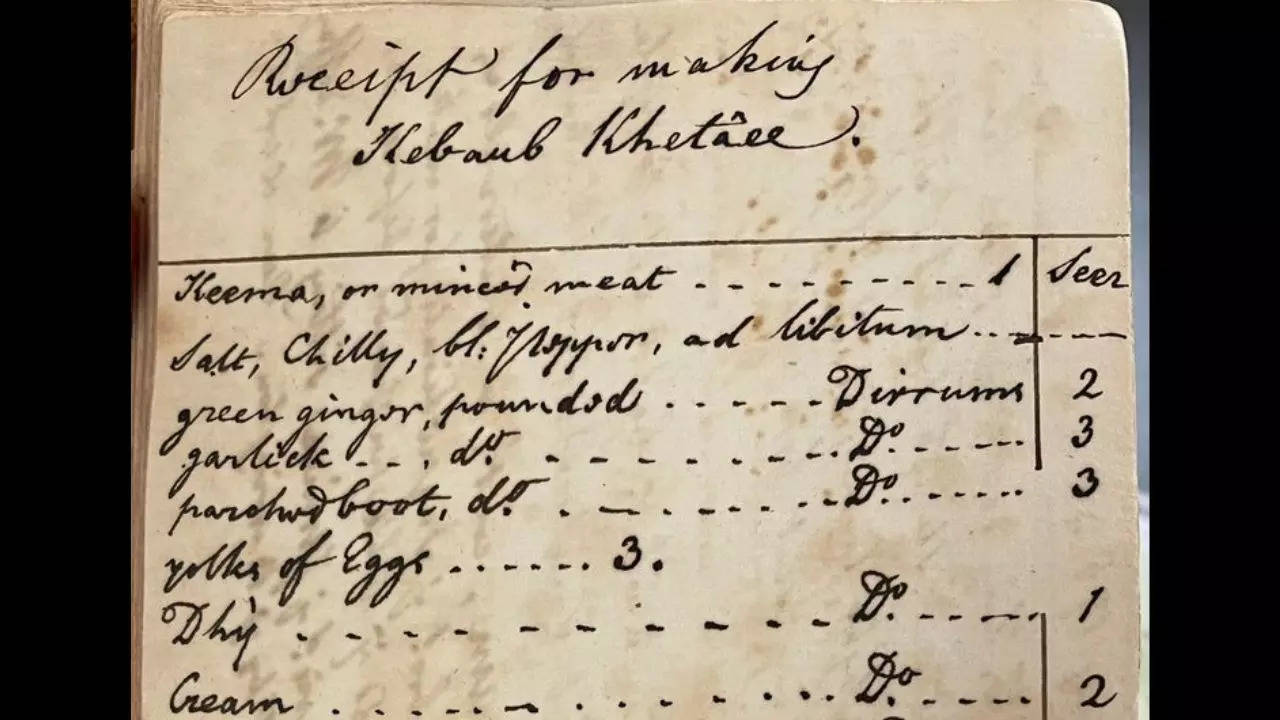 Receipt for making
Kebaub Khetâee.
Keema, or minced meat - - - - - - - - - - 1 Seer
Salt, Chilly, bl: Pepper, ad libitum - - - - -
green ginger, pounded - - - - - Dirrums 2
garlick - - - do. - - - - - - - - Do. - - - - 3
parched boot, do. - - - - - - - Do. - - - - - 3
yolks of Eggs ...... 3.
Dhy - - - - - - - - - - Do. - - - - - 1
Cream - - - - - - - - Do - - - - - 2